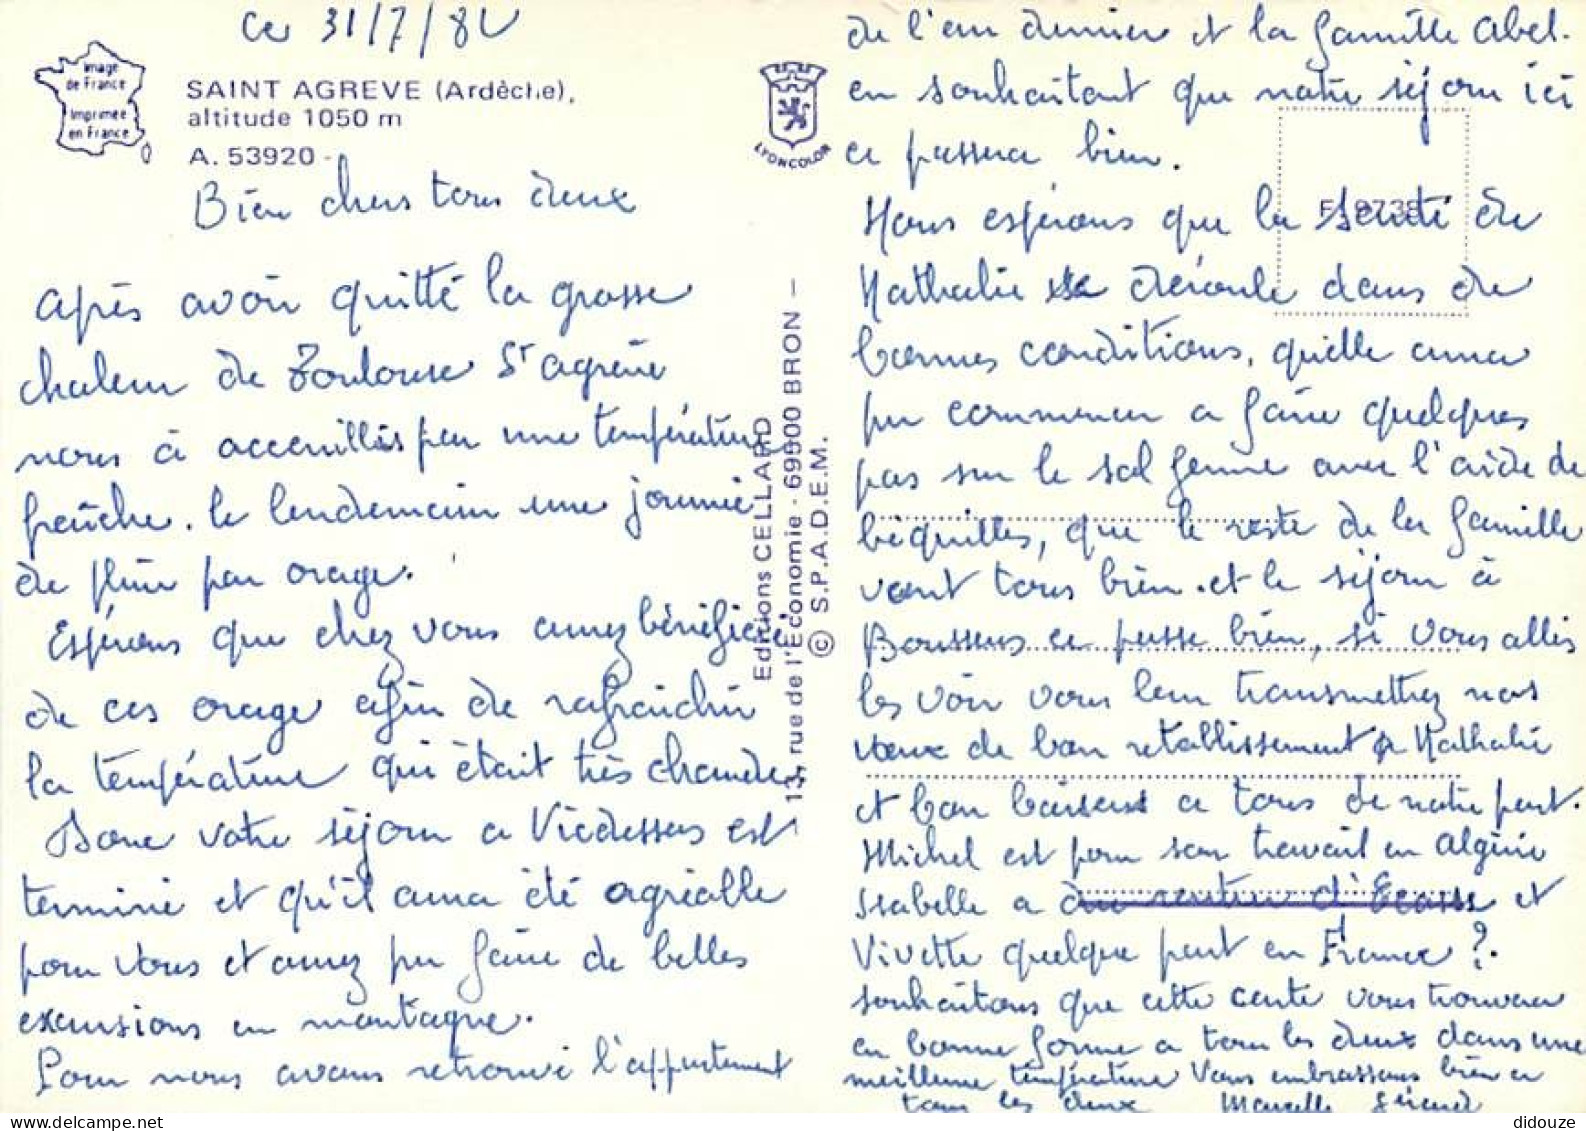 ce 31/7/82
Image
de France
Imprimée
en France
SAINT AGREVE (Ardèche),
altitude 1050 m
A. 53920 -
LYONCOLOR
Bien chers tous deux
après avoir quitté la grosse
chaleur de Toulouse St agrève
nous à accenillis par une température
fraîche. le lendemain une journée
de pluie par orage.
Espérons que chez vous aurez bénéficié
de ces orage afin de rafraichir
la température qui était très chaude,
Donc votre séjour a Vicdessos est
terminé et qu'il aura été agréable
pour vous et aurez pu faire de belles
excursions en montagne.
Pour nous avons retrouvé l'appartement
Editions CELLARD
13, rue de l'Economie - 69500 BRON —
© S.P.A.D.E.M.
de l'an dernier et la famille Abel.
en souhaitant que notre séjour ici
ce passera bien.
Nous espérons que la santé de
Nathalie se déroule dans de
bonnes conditions, quelle aura
pu commencer a faire quelques
pas sur le sol ferme avec l'aide de
béquilles, que le reste de la famille
vont tous bien. et le séjour à
Boussens ce passe bien, si vous allés
les voir vous leur transmettrez nos
vœux de bon retablissement a Nathalie
et bon baisers a tous de notre part.
Michel est pour son travail en Algérie
Isabelle a du rentrer d'Ecosse et
Vivette quelque part en France ?.
souhaitons que cette carte vous trouvera
en bonne forme a tous les deux dans une
meilleure température Vous embrassons bien a
tous les deux Marcelle Gérard
didouze